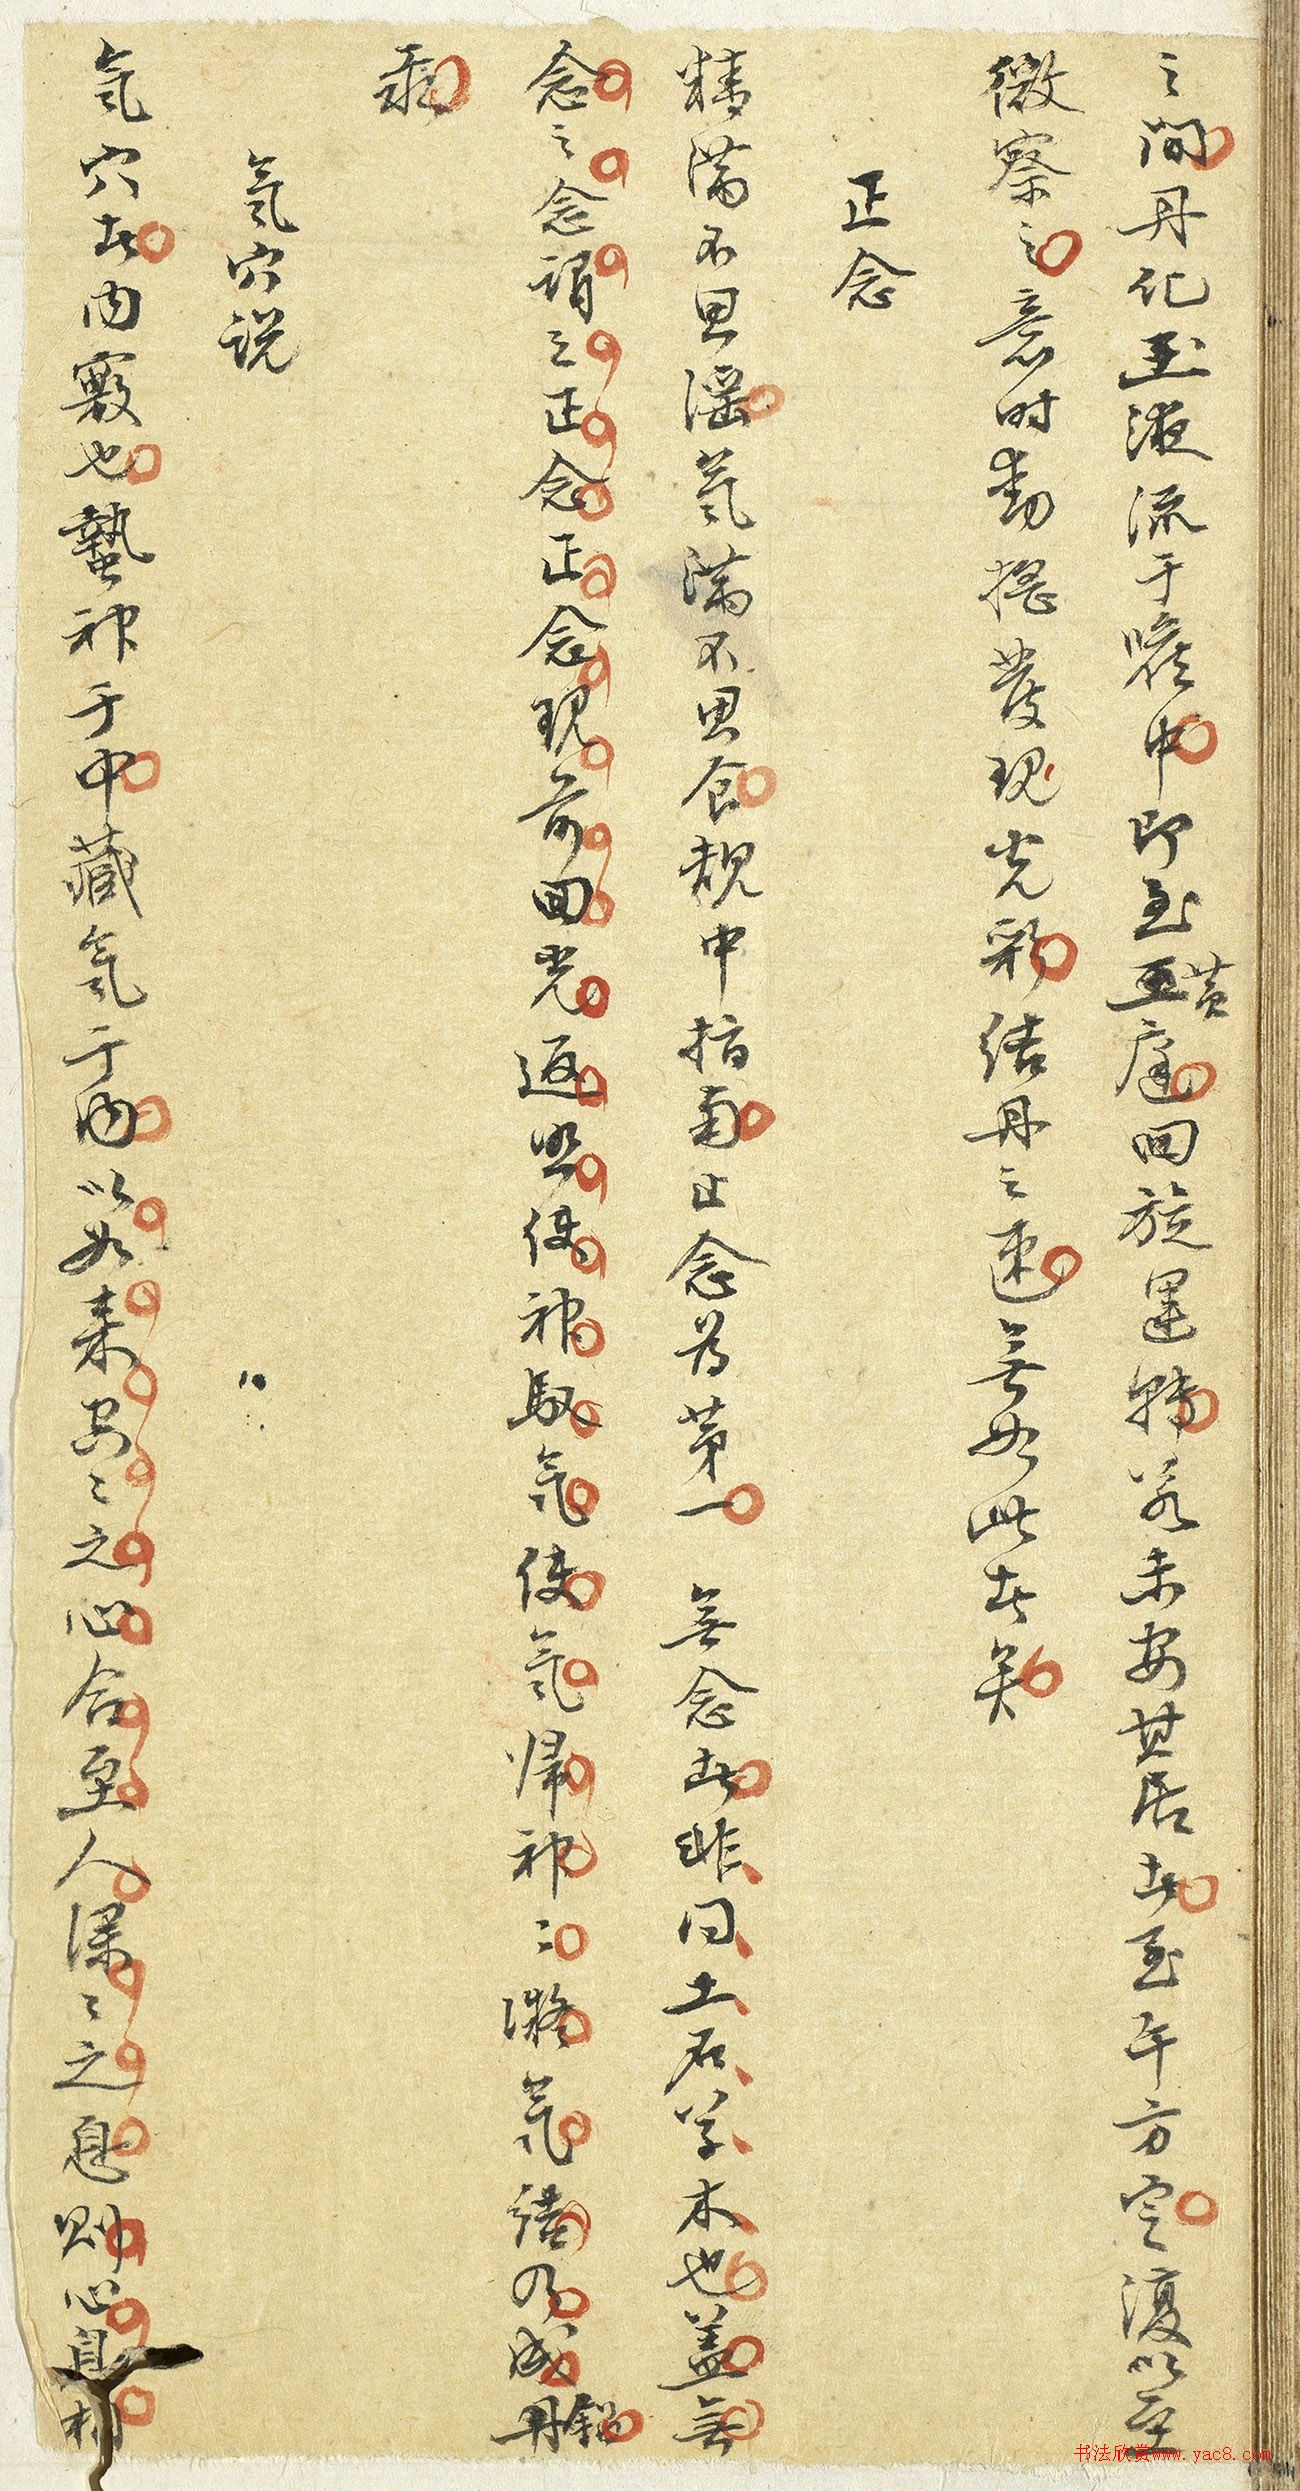 之間丹化玉液流于臍中即至黃庭回旋運轉若未安其居者至午方定復以至
微察之意時動搖發現光彩結丹之速無如此者矣
正念
精滿不思淫氣滿不思食規中指南止念為第一 無念者非同土石草木也蓋無
念之念謂之正念正念現前回光返照使神馭氣使氣歸神神凝氣結乃成丹鉛
汞
氣穴說
氣穴者內竅也蟄神于中藏氣于內以如來空空之心合至人深深之息則心息相
书法欣赏www.yac8.com